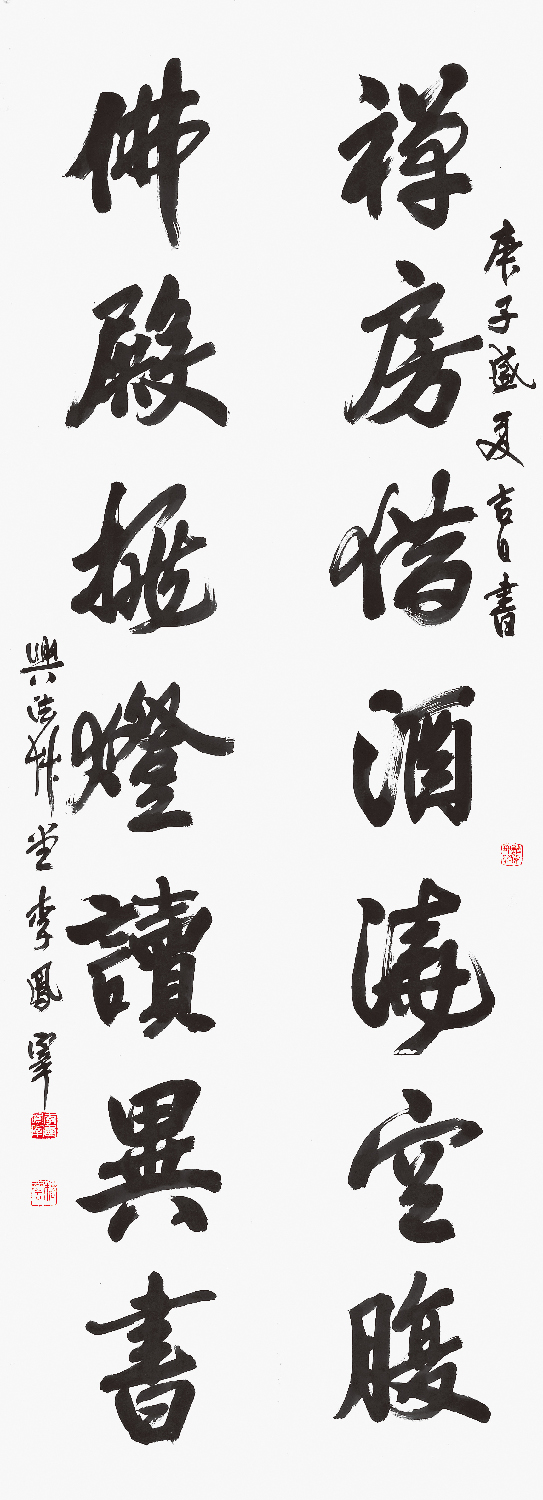 庚子盛夏吉日書
禪房借酒澆空腹
佛殿挑燈讀異書
興法林堂李鳳